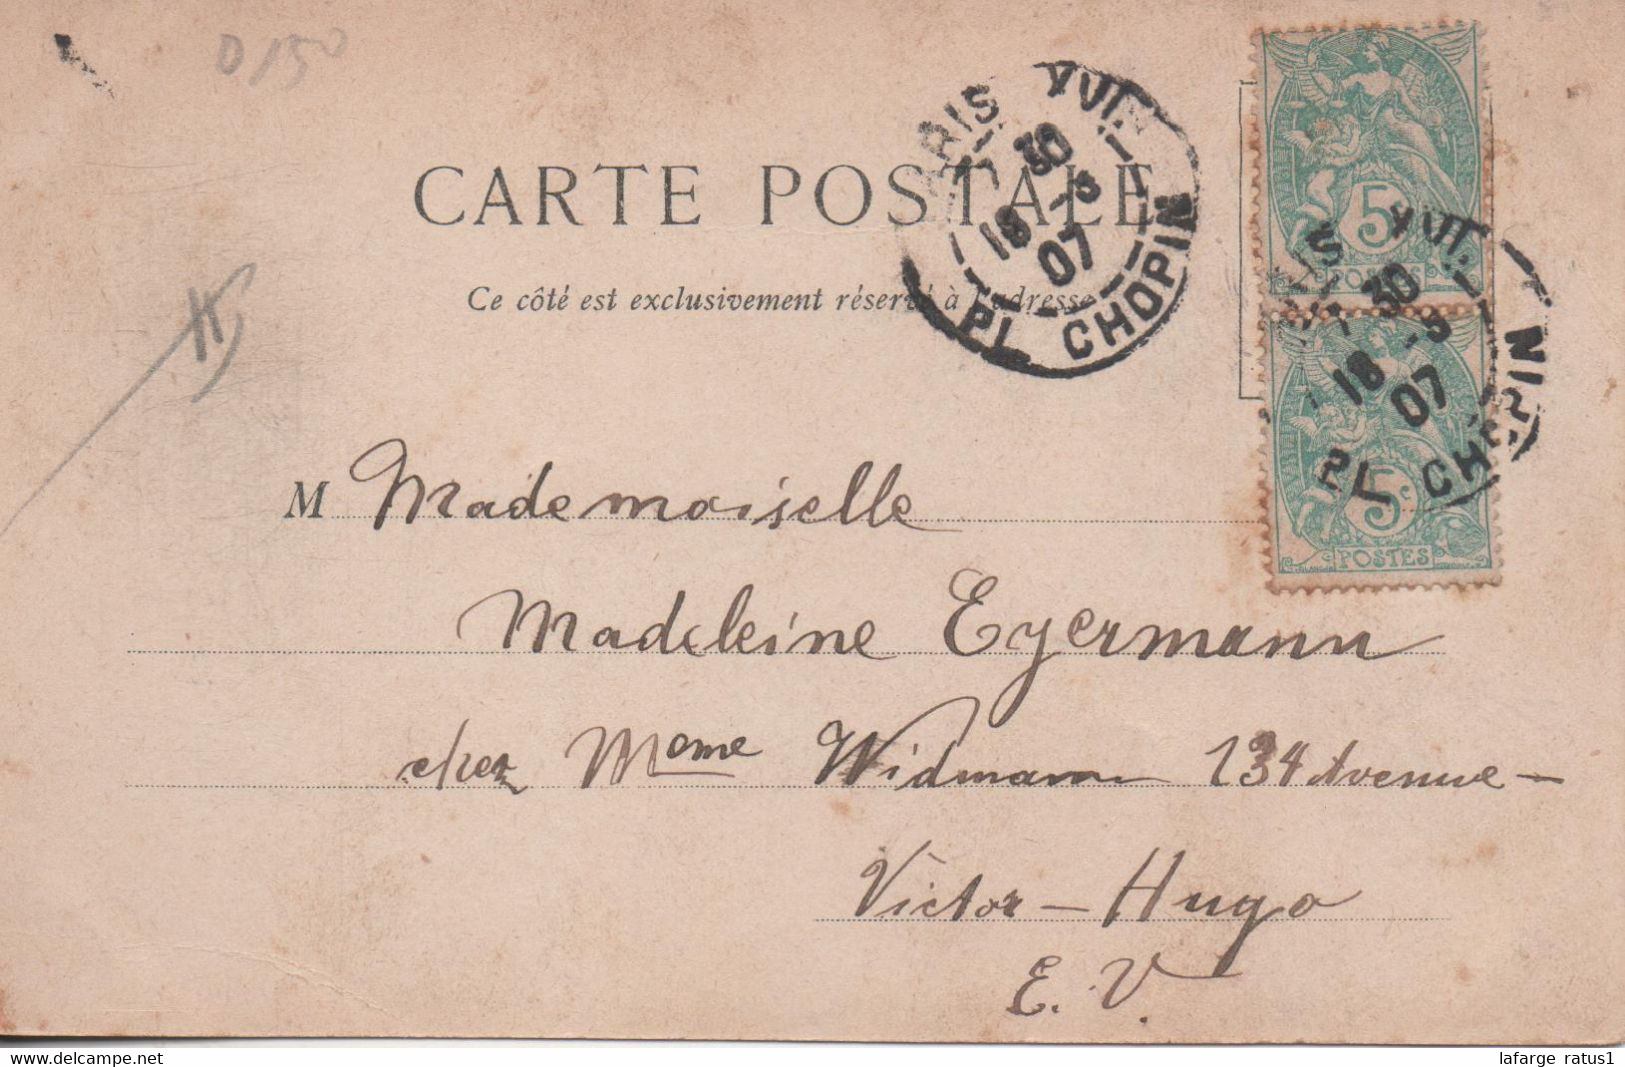 D 150
CARTE POSTALE
Ce côté est exclusivement réservé à l'adresse
PARIS XVIII
17 30
18 -3
07
PL CHOPIN
5
POSTES
PARIS XVIII
17 30
18 -3
07
PL CHOPIN
5c
POSTES
M Mademoiselle
Madeleine Eyermann
chez Mome Widmann 134 Avenue -
Victor - Hugo
E. V.
delcampe.net
lafarge_ratus1